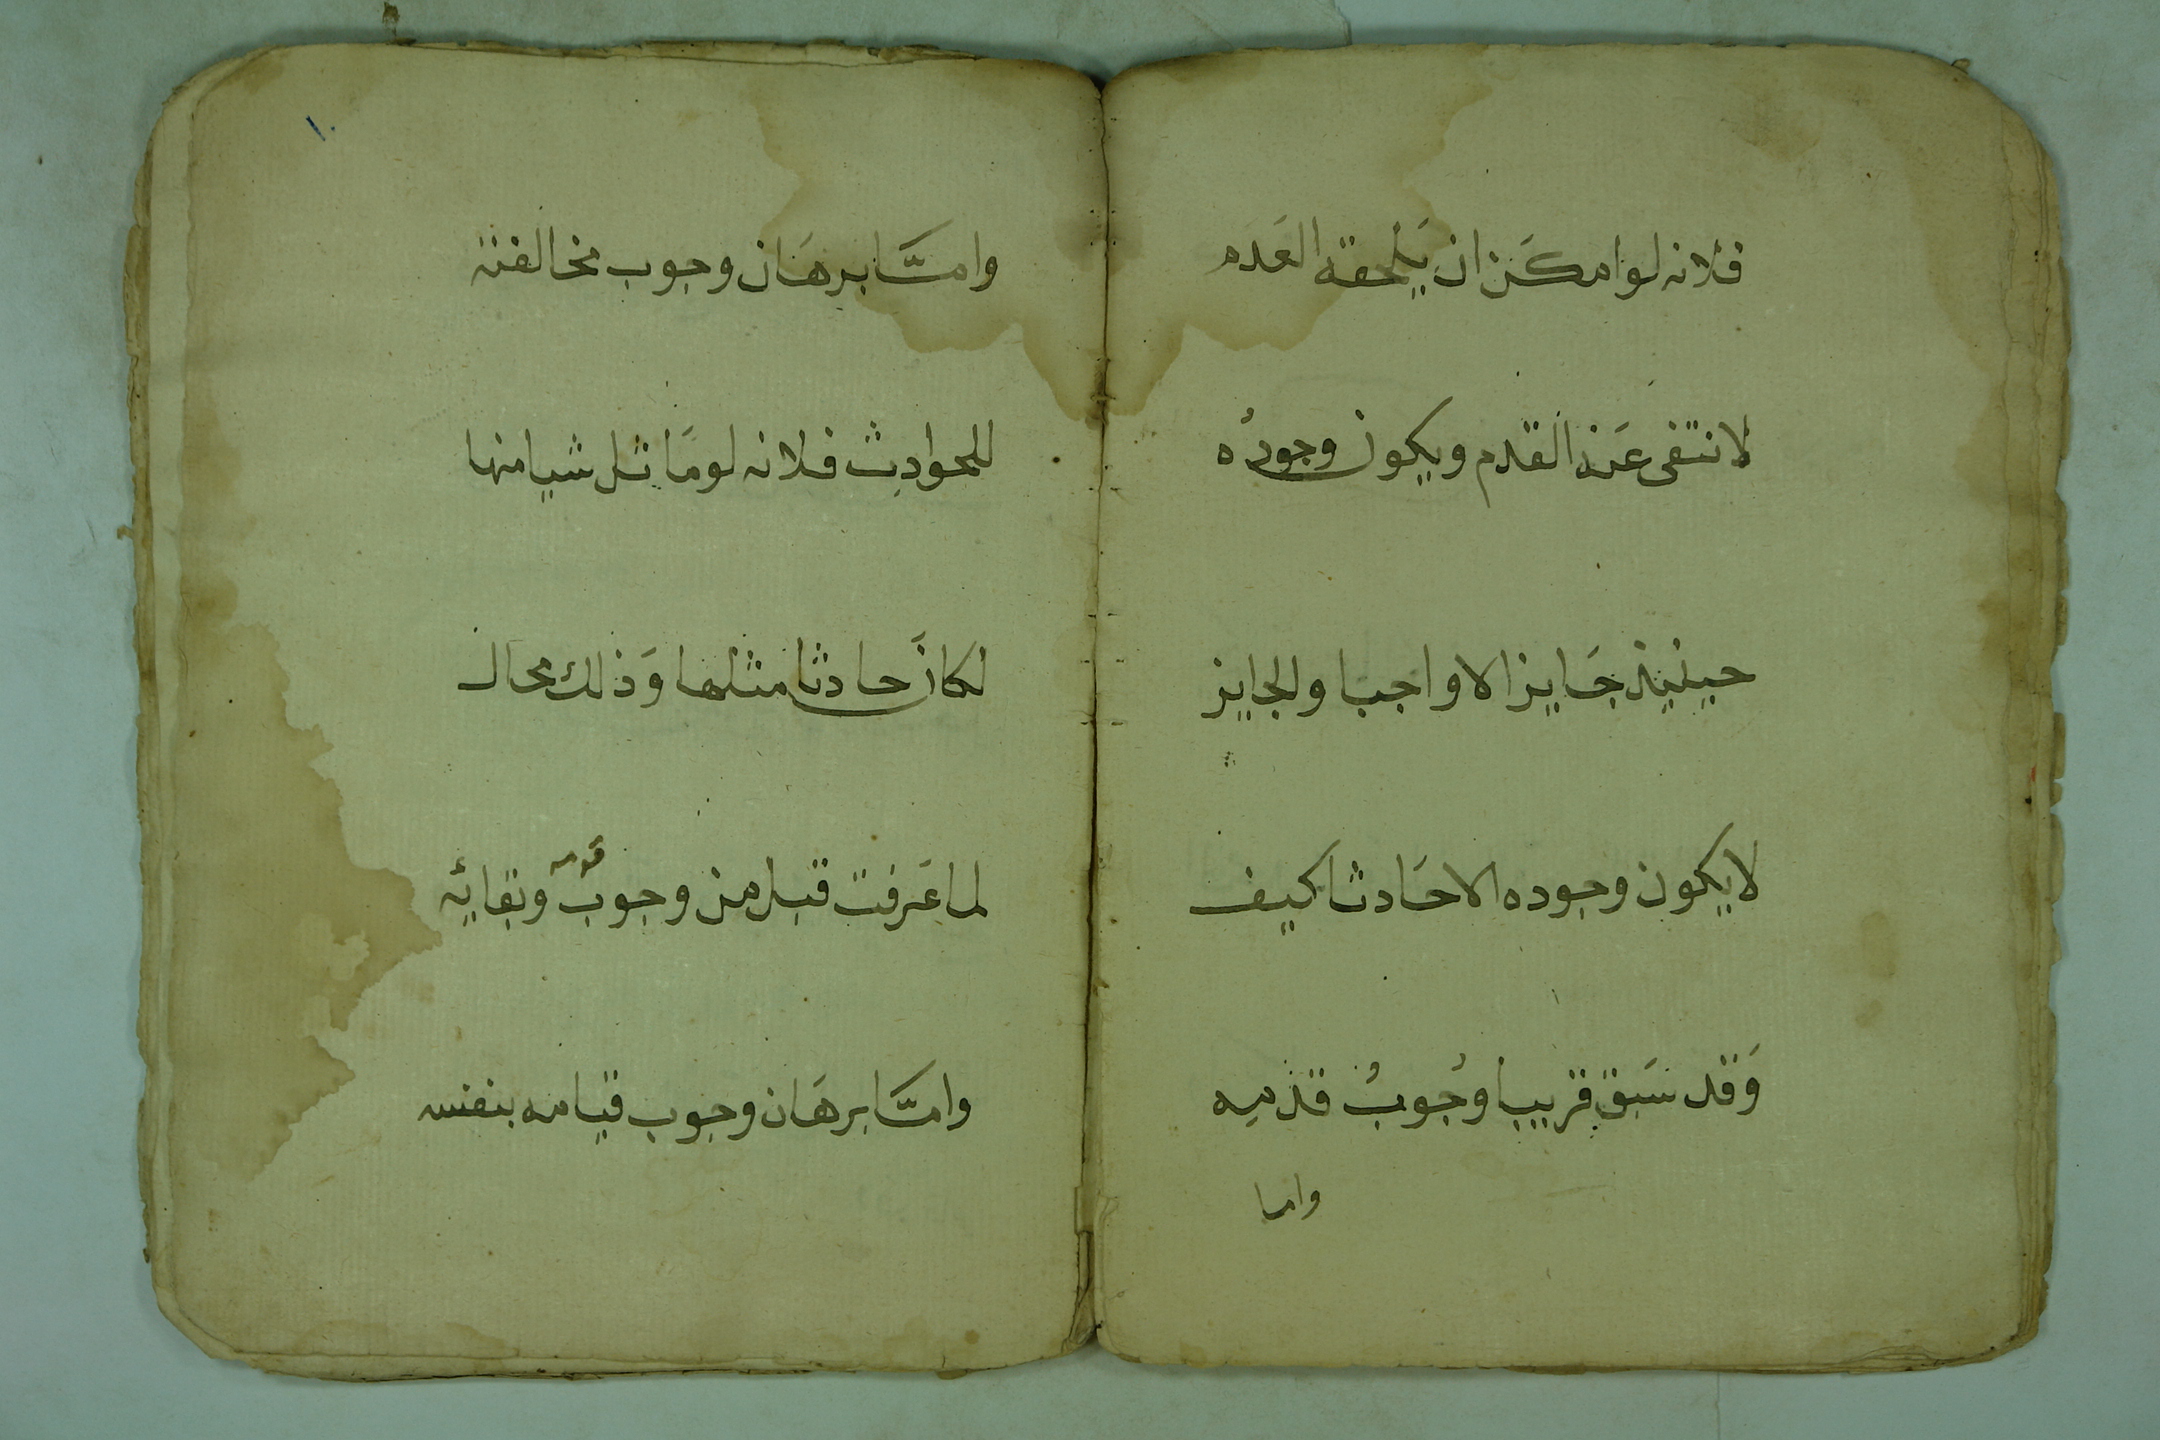 فلانه لو امكَن ان يَلحقه العَدم
لانتفى عَنه القدم ويكون وجودُه
حينيذ جَايزا لا واجبا والجايز
لا يكون وجوده الا حَادثا كيف
وَقد سَبق قريبا وُجوبُ قدمِه
واما
١٠
وامَّا برهَان وجوب مخالفته
للحوادِث فلانه لو مَاثل شيا منها
لكانَ حادثا مثلها وَذلك محال
لما عَرفت قبل من وجوب قدمه وبقائِه
وامَّا برهَان وجوب قيامه بنفسه